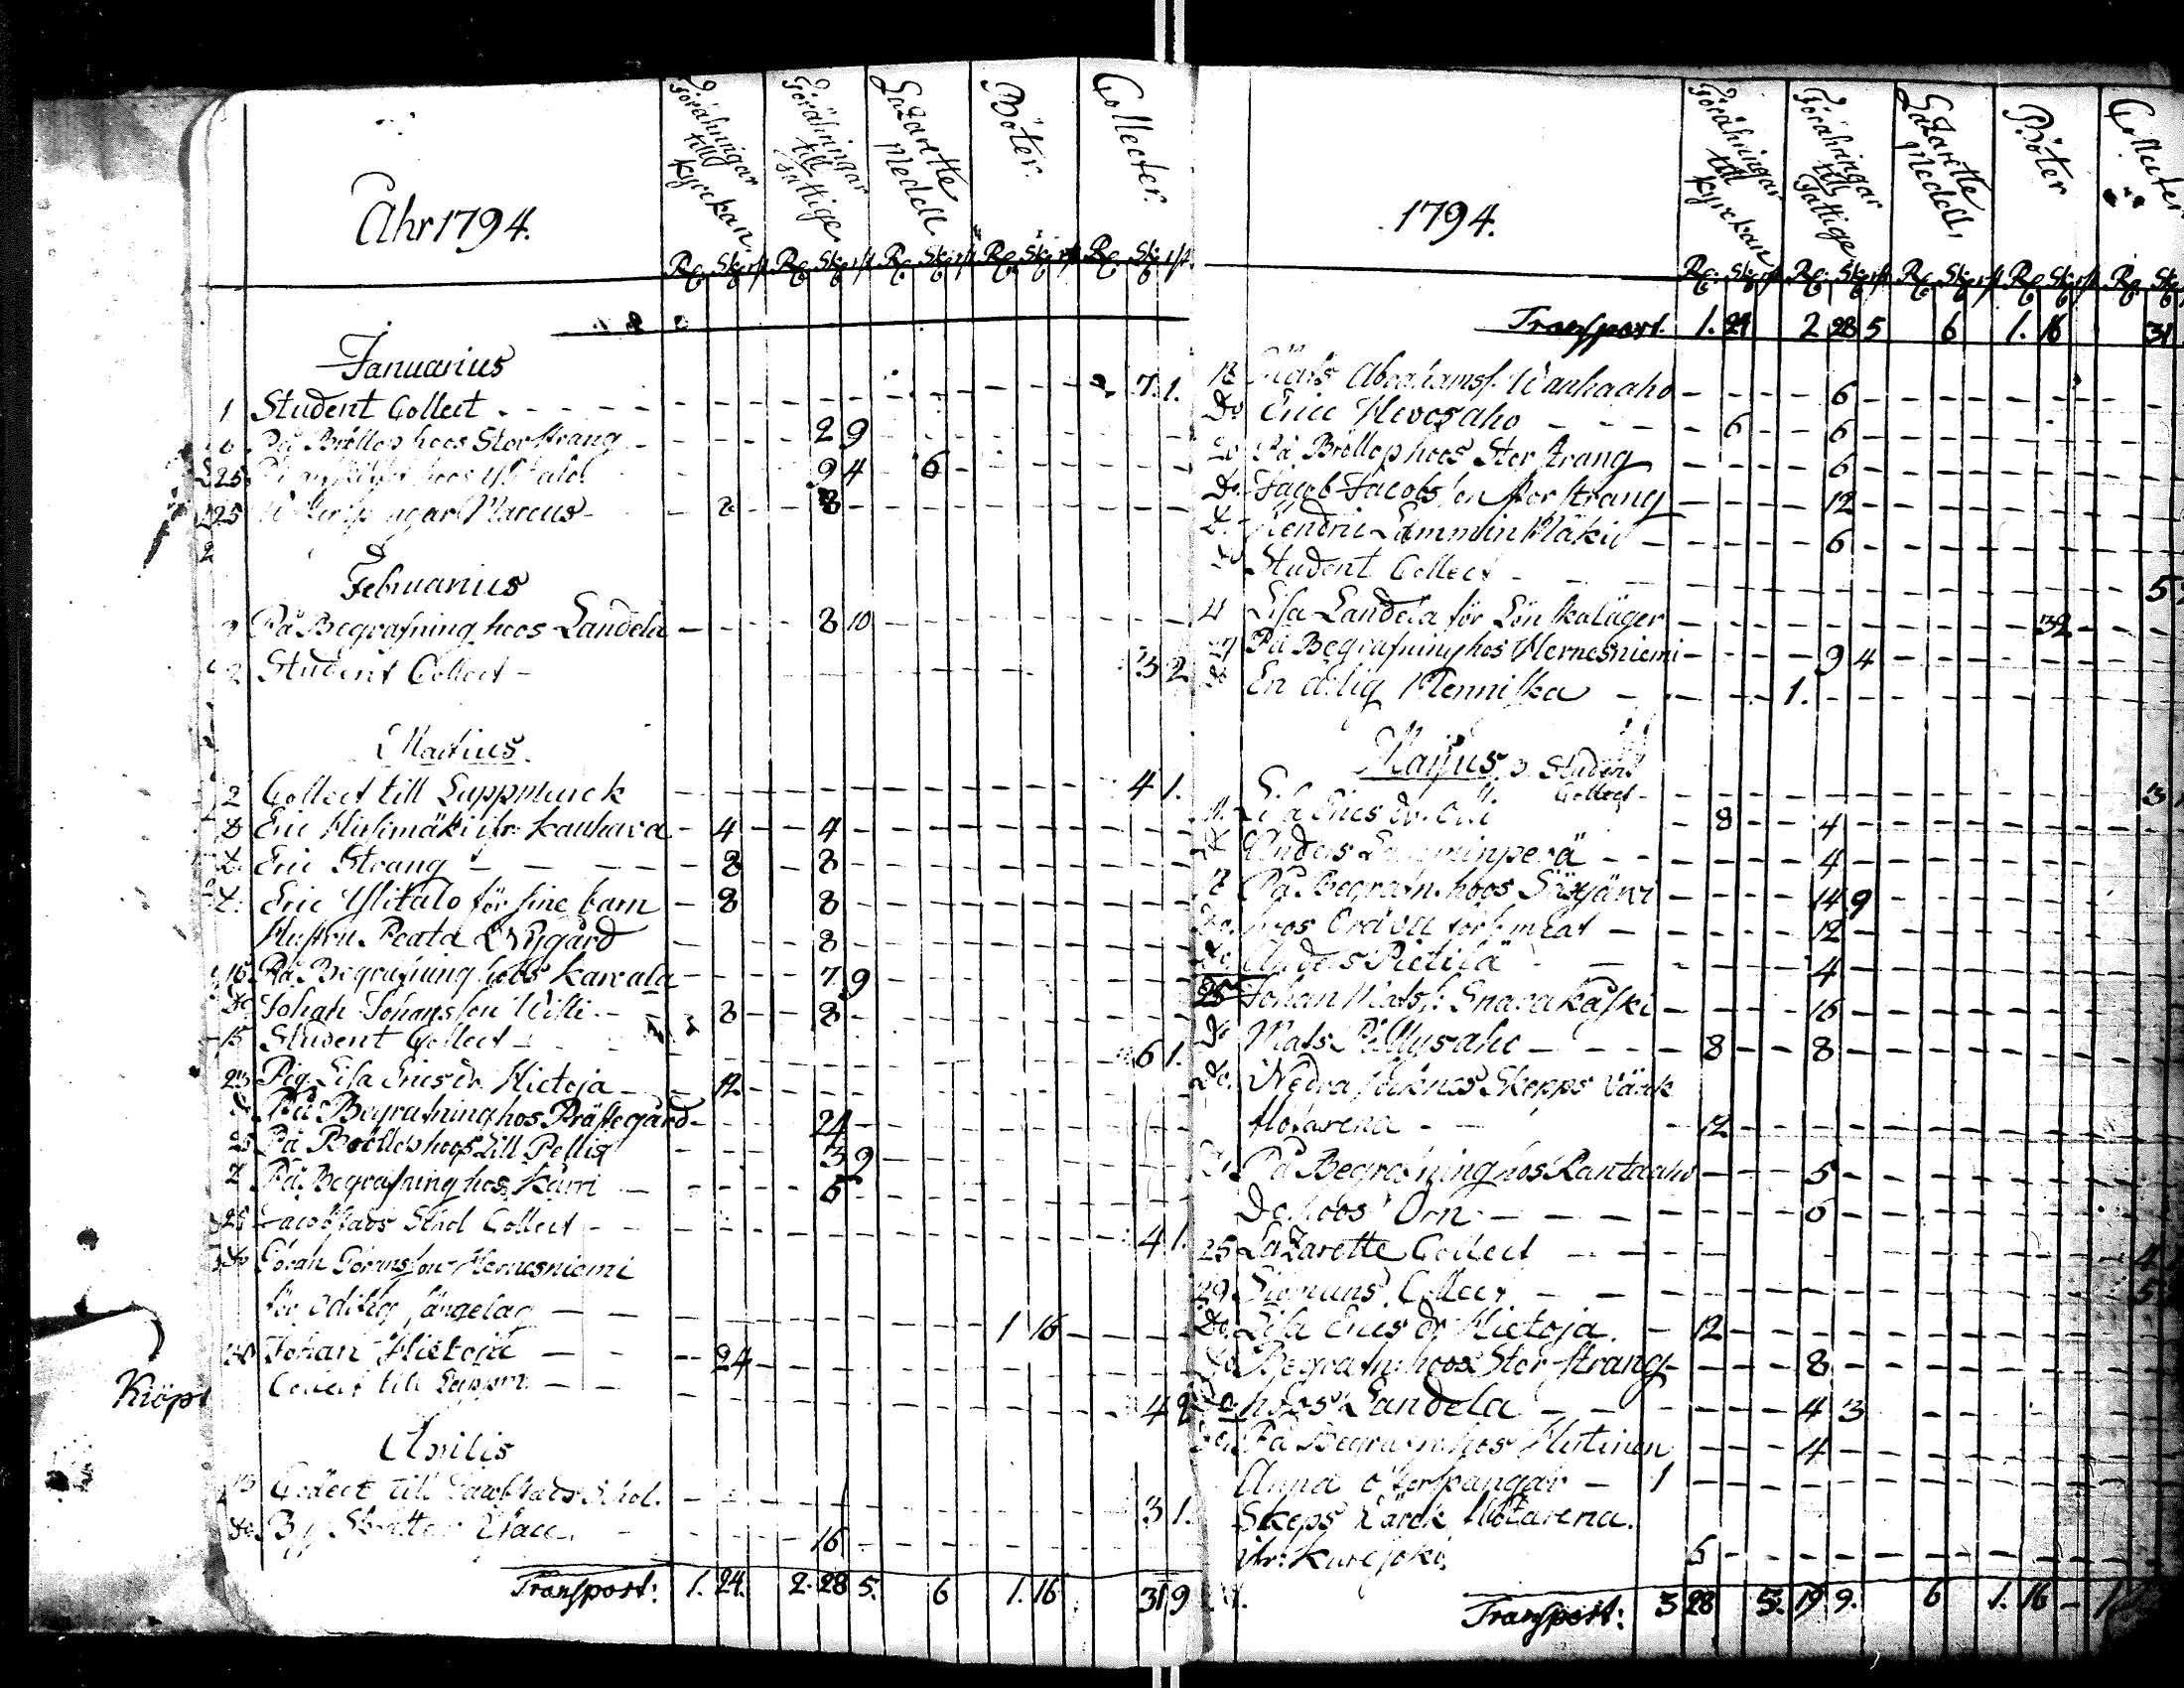 Åhr 1794.
Föräringar till Kyrckan. Föräringar till Fattige. Lazarette Medell Böter. Collecter.
Januarius
1 Student Collect 7. 1.
6 På Bröllop hoos Storstrang 2 9
25 9 4 6
25 Marcus 8 8
Februarius
På Begrafning hoos Landela 8 10
2 Student Collect 3 2
Martius
2 Collect till Lappmarck 4 1.
Do Eric Huhmäki ifr: Kauhava 4 4
Do Eric Strang 8 8
Do Eric Ylitalo för sine barn 8 8
Hustru Beata Nygård 8
16 På Begrafning hoos Karvala 7 9
Do Johan Johansson Wisti 8 8
15 Student Collect 6 1.
23 Pig. Lisa Ericsdr Hietoja 12
På Begrafning hos Prästegård 24
25 På Bröllop hoos Lill Pellis 3 9
På Begrafning hos Kärri 6
Jacobstads Schol Collect 4 1.
Do Göran Göransson Hernesniemi
för otidig sängelag 1 16
Johan Hietoja 24
Collect till Lappm: 4 2
Aprilis
13 Collect till Jacobstads Schol. 3 1.
Do 16
Transport: 1. 24. 2. 28 5. 6 1. 16 31 9
1794.
Föräringar till Kyrckan Föräringar till Fattige Lazarette Medell, Böter Collecter
Transport 1. 24 2 28 5 6 1. 16 31
18 Mats Abrahamss. Wanhaaho 6
Do Eric Hevosaho 6 6
20 På Bröllop hoos Storstrang 6
Do Jacob Jacobsson Storstrang 12
Do Hendric Lamminmäki 6
Do Student Collect 5
21 Lisa Landela för Lönskaläger 32
27 På Begrafning hos Hernesniemi 9 4
Do En ärlig Menniska 1.
Majus, Student
Collect 3
Lisa Ericsdr 8 4
Do Anders Lamminperä 4
18 På Begrafn. hoos Sääxjärvi 14 9
Do hoos 12
Do Anders Pietilä 4
25 Johan Matss: Enarakaski 16
Do Mats Pöllysaho 8 8
Do. Nedra Socknes Skepps Värck
Hotarena 12
På Begrafning hos Rantaaho 5
Do hoos Orn 6
25 Lazarette Collect 4
29 Siömans Collect 5
Do Lisa Ericsdr Hietoja 12
Do Begrafn: hoos Storstrang 8
Do hoos Landela 4 3
Do På Begrafn: hos Hutinen 4
Anna Öfverspangar 1
Skeps Värck Hotarena.
ifr: Kurejoki, 5
Transport: 3 28 5. 19 9. 6 1. 16
Kiöpt